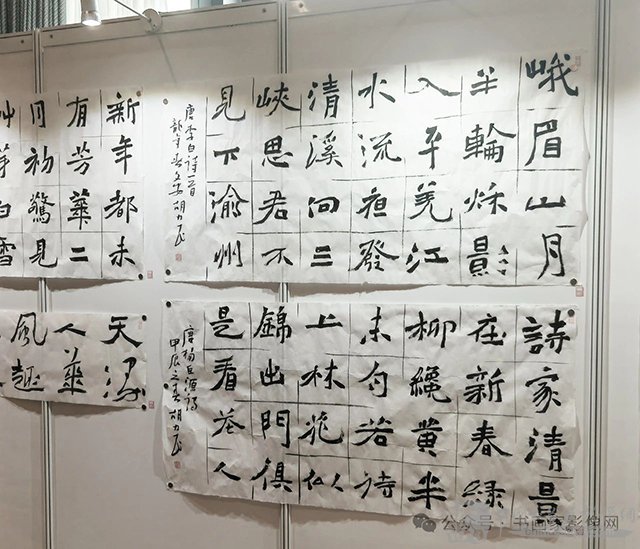 峨眉山月
半輪秋影
入平羌江
水流夜發
清溪向三
峽思君不
見下渝州
唐李白詩一首
胡力民
新年都未
有芳華二
月初驚見
艸芽白雪
詩家清景
在新春綠
柳纔黃半
未勻若待
上林花似
錦出門俱
是看花人
唐楊巨源詩
甲辰之春胡力民
天
人華
風趣
公众号：书画家影像网